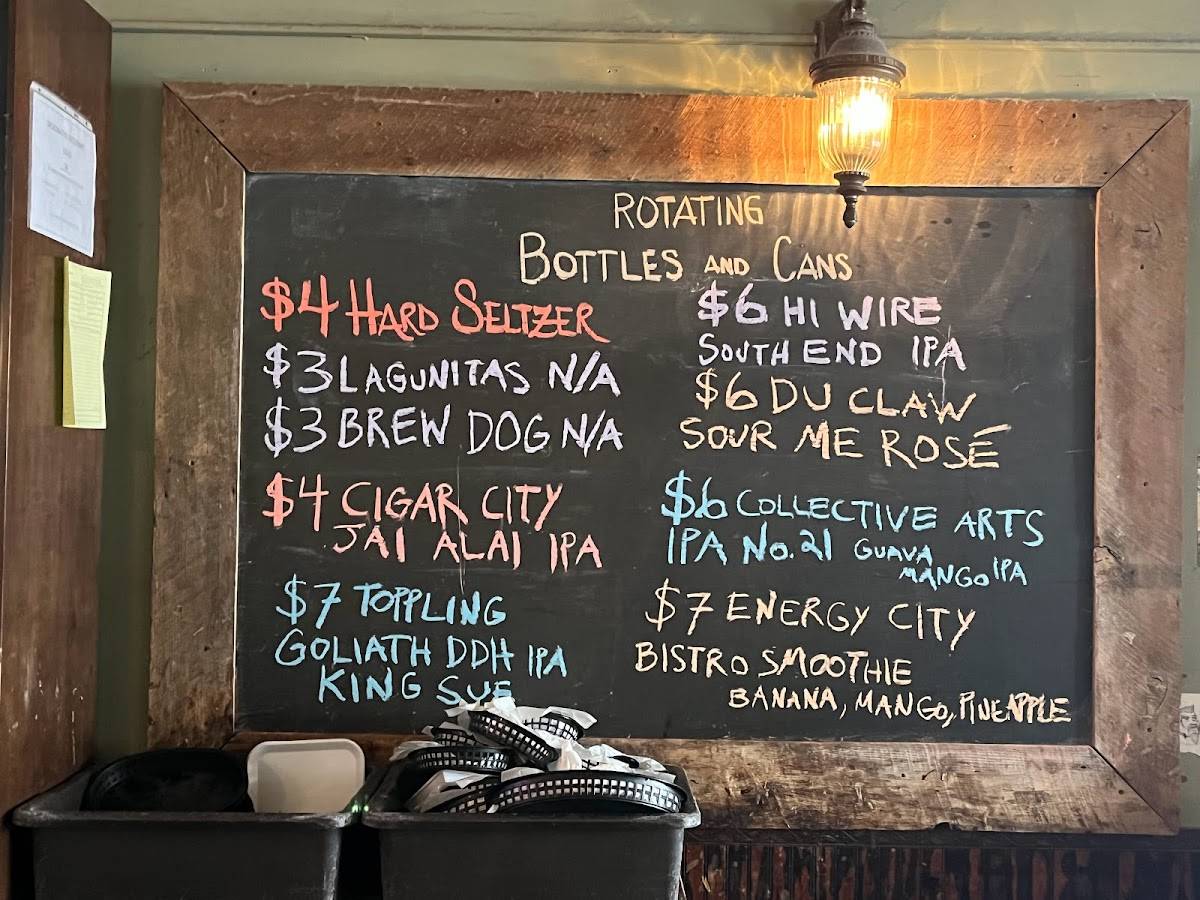 ROTATING
BOTTLES AND CANS
$4 HARD SELTZER
$3 LAGUNITAS N/A
$3 BREW DOG N/A
$4 CIGAR CITY
JAI ALAI IPA
$7 TOPPLING
GOLIATH DDH IPA
KING SUE
$6 HI WIRE
SOUTH END IPA
$6 DU CLAW
SOUR ME ROSÉ
$6 COLLECTIVE ARTS
IPA No. 21 GUAVA
MANGO IPA
$7 ENERGY CITY
BISTRO SMOOTHIE
BANANA, MANGO, PINEAPPLE